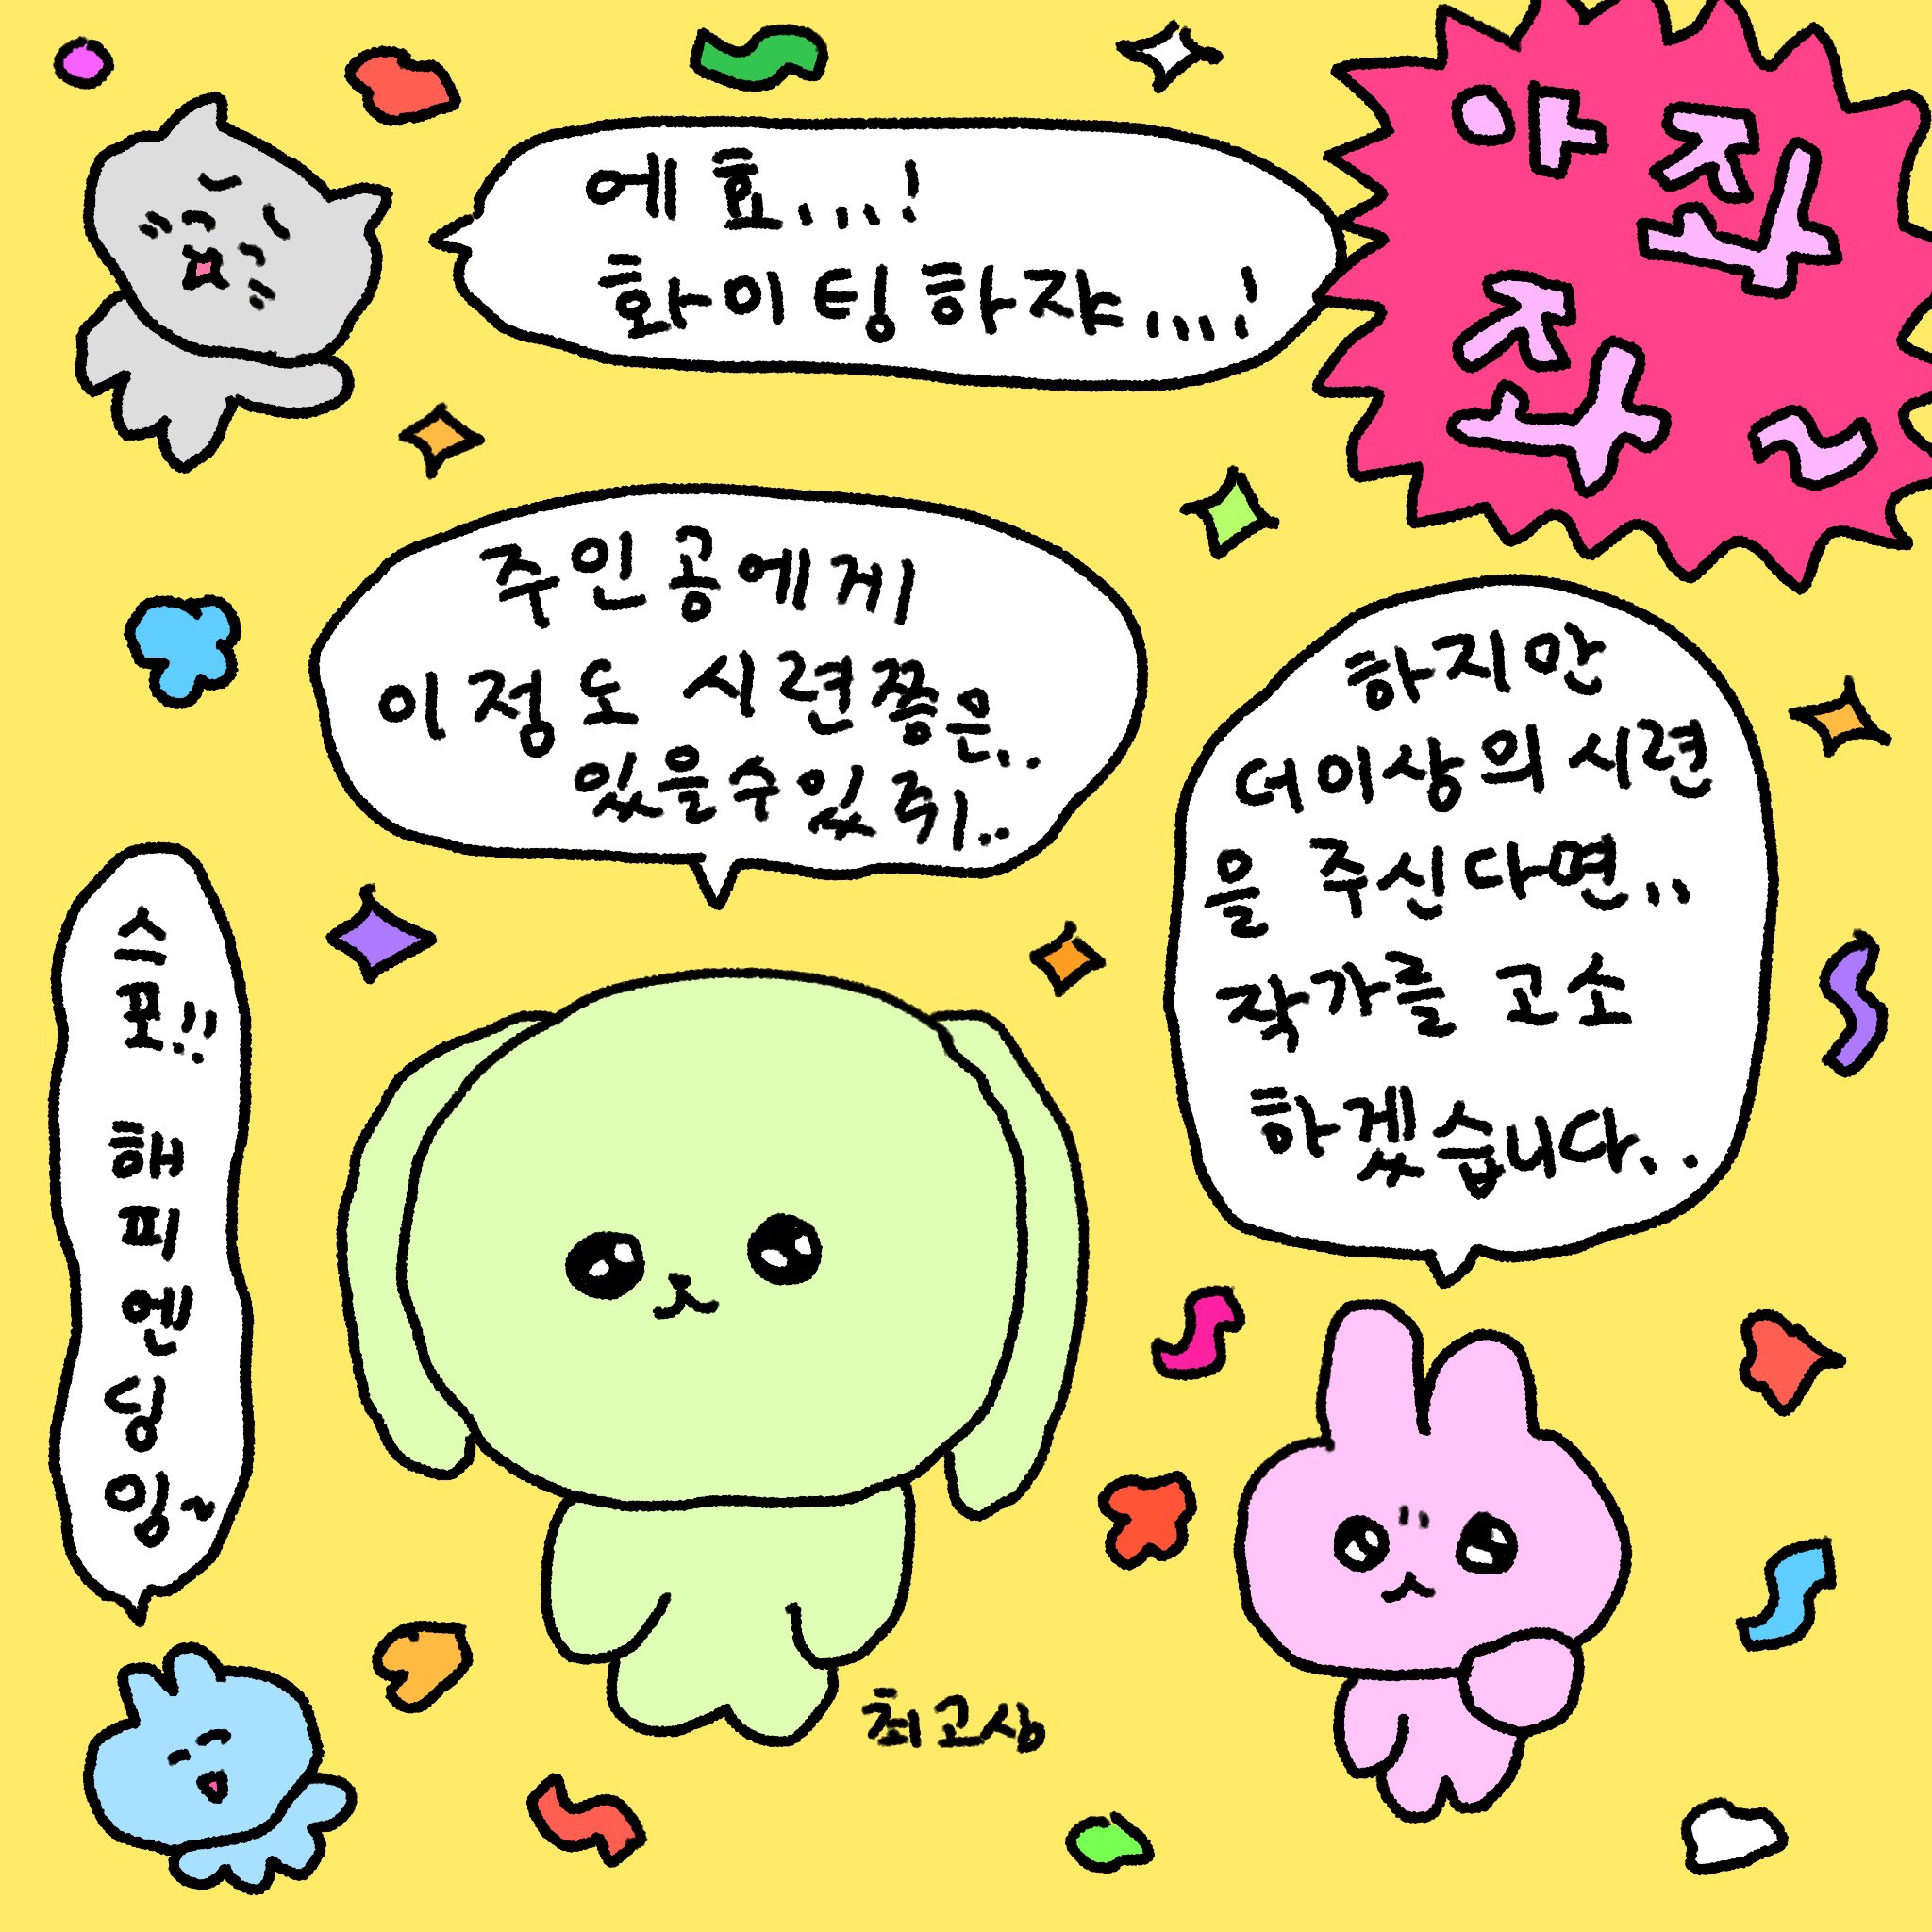 에효,,,,!
화이팅하자,,,,!
아좌
좌~
주인공에게
이정도 시련쯤은,..
있을수있쥐..
하지안
더이상의 시련
을 주신다면,,
작가를 고소
하겠습니다,..
스포!!
해피엔싱잉~
최고심